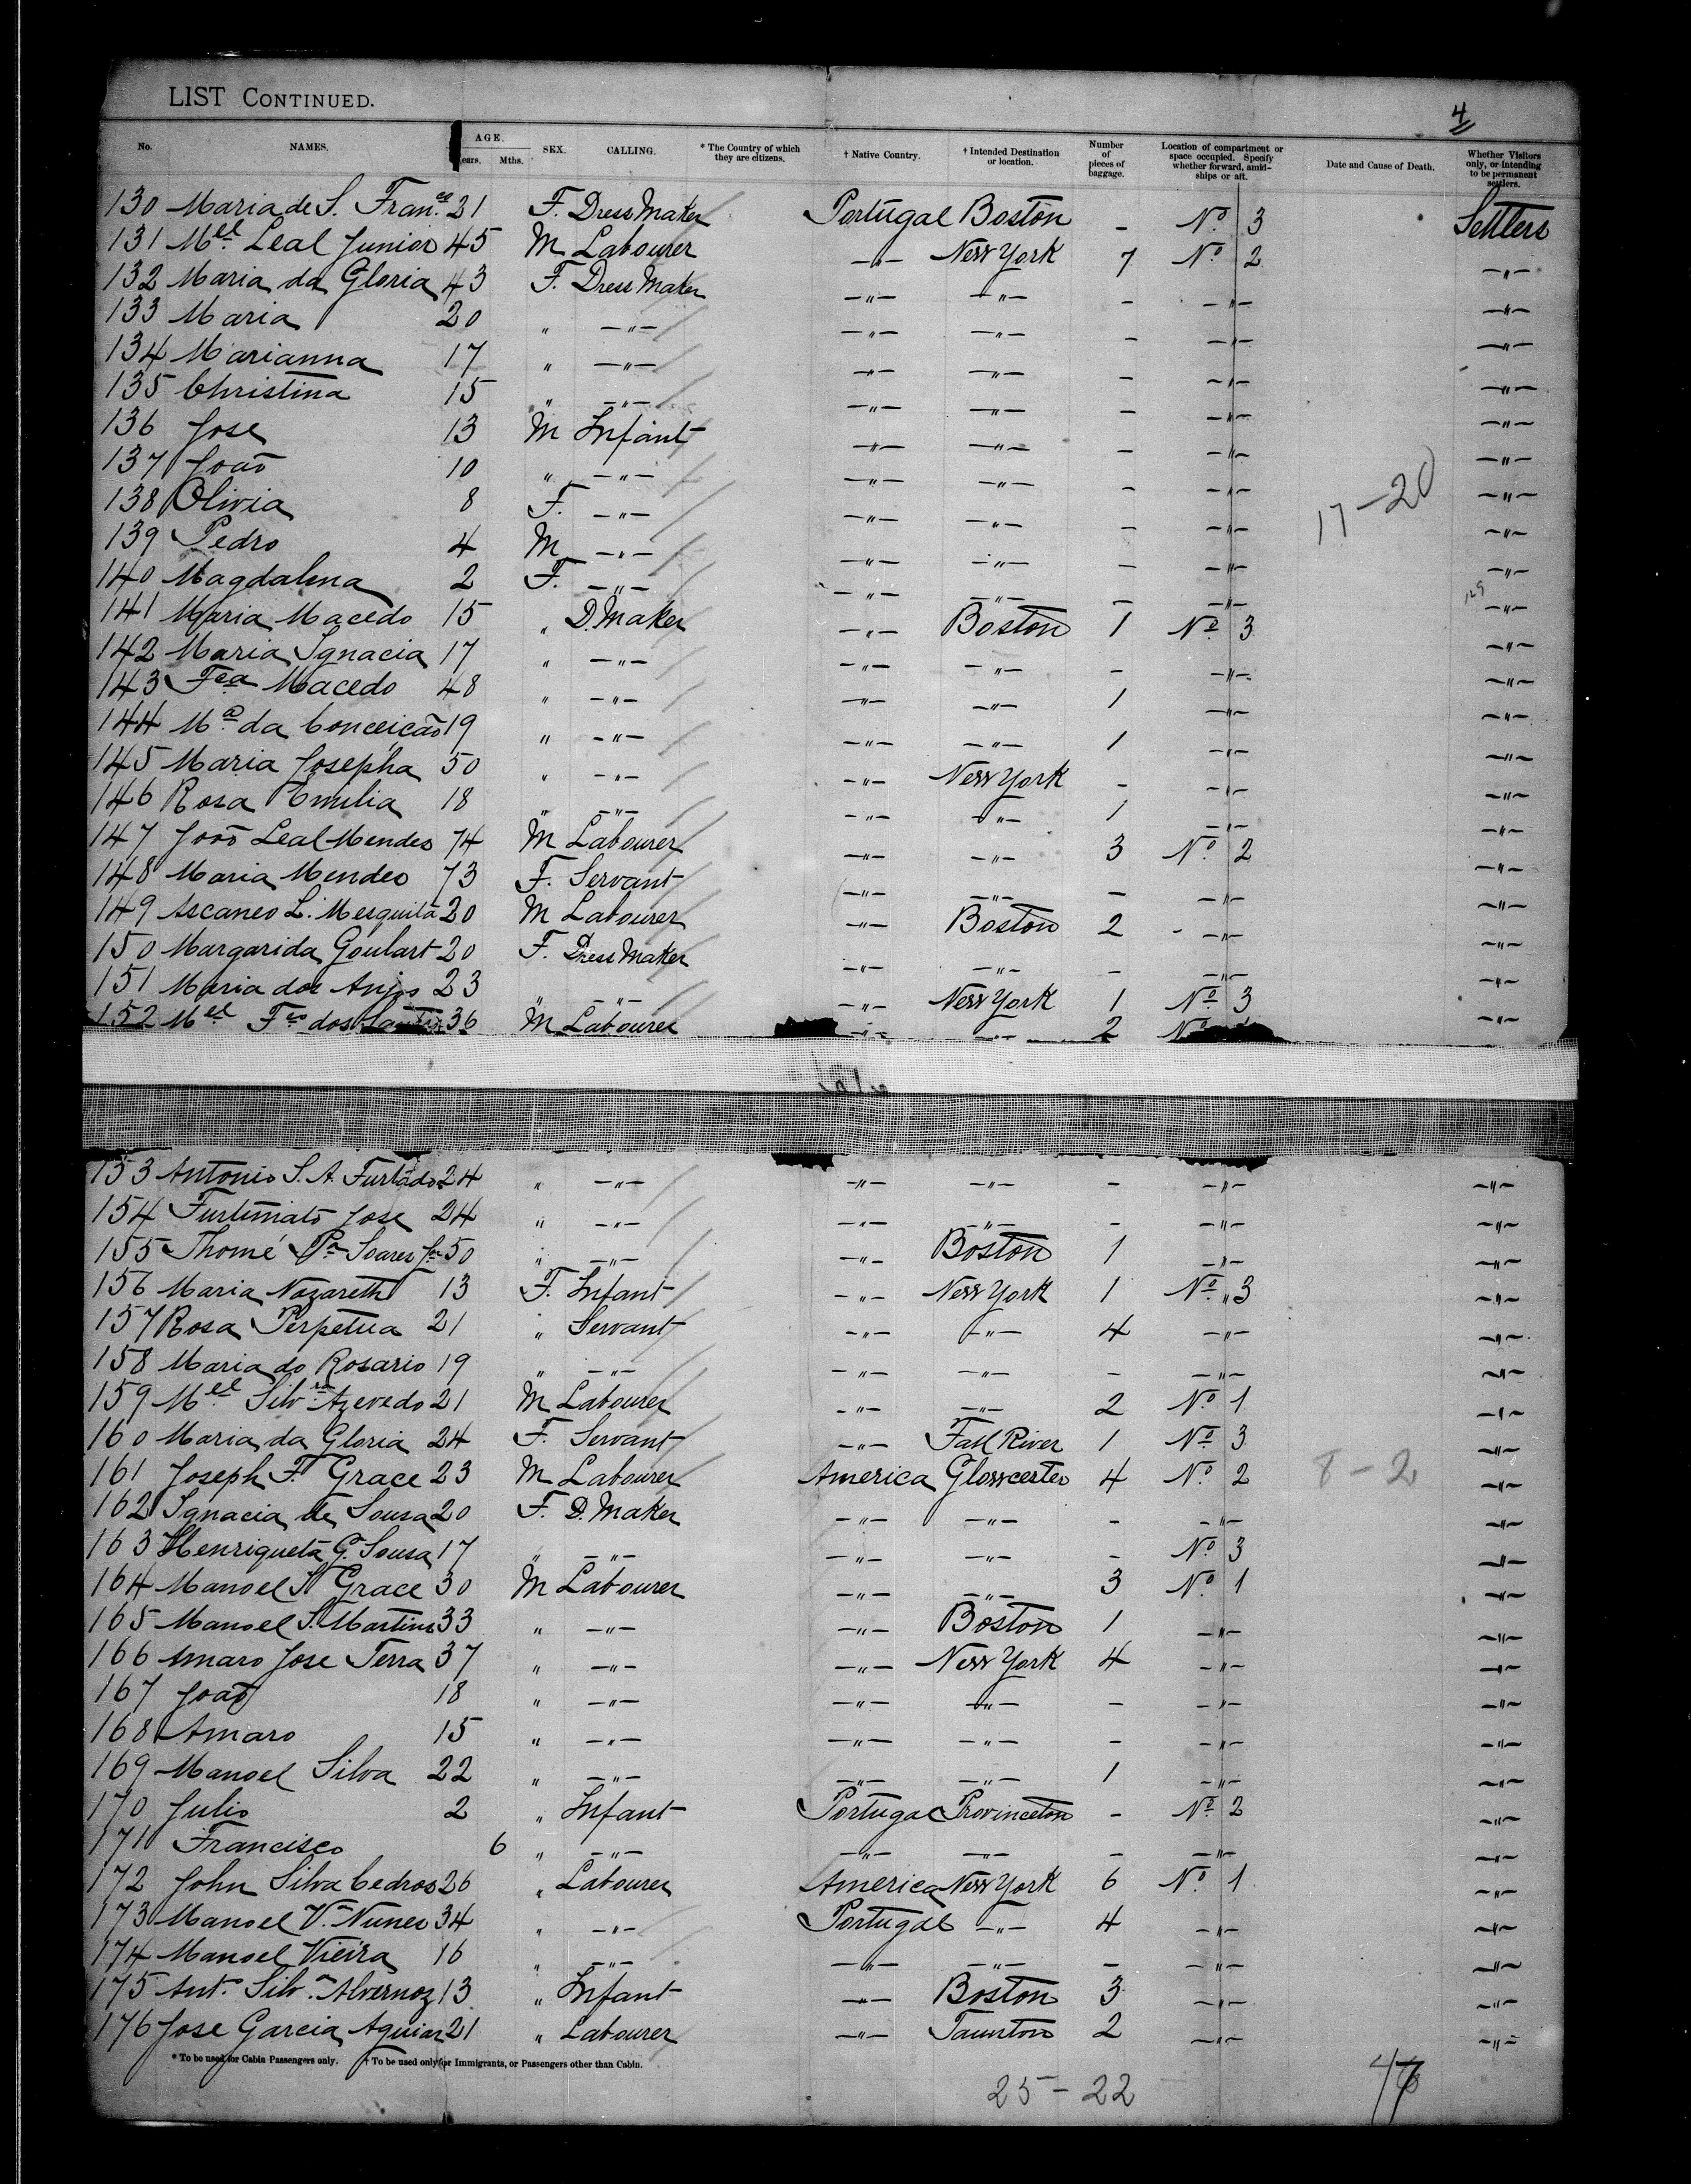 LIST CONTINUED.
4
No. NAMES. AGE. Years. Mths. SEX. CALLING. * The Country of which they are citizens. † Native Country. † Intended Destination or location. Number of pieces of baggage. Location of compartment or space occupied. Specify whether forward, amidships or aft. Date and Cause of Death. Whether Visitors only, or intending to be permanent settlers.
130 Maria de S. Fran.co 21 F. DressMaker Portugal Boston - No. 3 Settlers
131 Mel Leal Junior 45 M Labourer -"- New York 7 No. 2 -"-
132 Maria da Gloria 43 F. DressMaker -"- -"- - -"- -"-
133 Maria 20 " -"- -"- -"- - -"- -"-
134 Marianna 17 " -"- -"- -"- - -"- -"-
135 Christina 15 " -"- -"- -"- - -"- -"-
136 Jose 13 M Infant -"- -"- - -"- -"-
137 Joaõ 10 " -"- -"- -"- - -"- -"-
138 Olivia 8 F. -"- -"- -"- - -"- 17-20 -"-
139 Pedro 4 M -"- -"- -"- - -"- -"-
140 Magdalena 2 F. -"- -"- -"- - -"- -"-
141 Maria Macedo 15 " D. Maker -"- Boston 1 No. 3 -"-
142 Maria Ignacia 17 " -"- -"- -"- - -"- -"-
143 Fca Macedo 48 " -"- -"- -"- 1 -"- -"-
144 Ma da Conceicaõ 19 " -"- -"- -"- 1 -"- -"-
145 Maria Josepha 50 " -"- -"- New York - -"- -"-
146 Rosa Emilia 18 " -"- -"- -"- 1 -"- -"-
147 Joaõ Leal Mendes 74 M Labourer -"- -"- 3 No. 2 -"-
148 Maria Mendes 73 F. Servant -"- -"- - -"- -"-
149 Ascaneo L. Mesquita 20 M Labourer -"- Boston 2 - -"- -"-
150 Margarida Goulart 20 F. Dress Maker -"- -"- - -"- -"-
151 Maria dos Anjos 23 " -"- -"- New York 1 No. 3 -"-
152 Mel Fco dos 36 M Labourer -"- -"- 2 No. -"-
153 Antonio S. A. Furtado 24 " -"- -"- -"- - -"- -"-
154 Furtunato Jose 24 " -"- -"- -"- - -"- -"-
155 Thomé Pa Soares Jor 50 " -"- -"- Boston 1 -"- -"-
156 Maria Nazareth 13 F. Infant -"- New York 1 No. 3 -"-
157 Rosa Perpetua 21 " Servant -"- -"- 4 -"- -"-
158 Maria do Rosario 19 " -"- -"- -"- - -"- -"-
159 Mel Silvra Azevedo 21 M Labourer -"- -"- 2 No. 1 -"-
160 Maria da Gloria 24 F. Servant -"- Fall River 1 No. 3 -"-
161 Joseph F. Grace 23 M Labourer America Glowcester 4 No. 2 8-2 -"-
162 Ignacia de Sousa 20 F. D. Maker -"- -"- - -"- -"-
163 Henriqueta G. Sousa 17 " -"- -"- -"- - No. 3 -"-
164 Manoel S. Grace 30 M Labourer -"- -"- 3 No. 1 -"-
165 Manoel S. Martins 33 " -"- -"- Boston 1 -"- -"-
166 Amaro Jose Terra 37 " -"- -"- New York 4 -"- -"-
167 Joaõ 18 " -"- -"- -"- - -"- -"-
168 Amaro 15 " -"- -"- -"- - -"- -"-
169 Manoel Silva 22 " -"- -"- -"- 1 -"- -"-
170 Julio 2 " Infant Portugal Provinceton - No. 2 -"-
171 Francisco 6 " -"- -"- -"- - -"- -"-
172 John Silva Cedros 26 " Labourer America New York 6 No. 1 -"-
173 Manoel V. Nunes 34 " -"- Portugal -"- 4 -"- -"-
174 Manoel Vieira 16 " -"- -"- -"- - -"- -"-
175 Anto. Silva. Alvernoz 13 " Infant -"- Boston 3 -"- -"-
176 Jose Garcia Aguiar 21 " Labourer -"- Taunton 2 -"- -"-
* To be used for Cabin Passengers only. † To be used only for Immigrants, or Passengers other than Cabin.
25-22 47